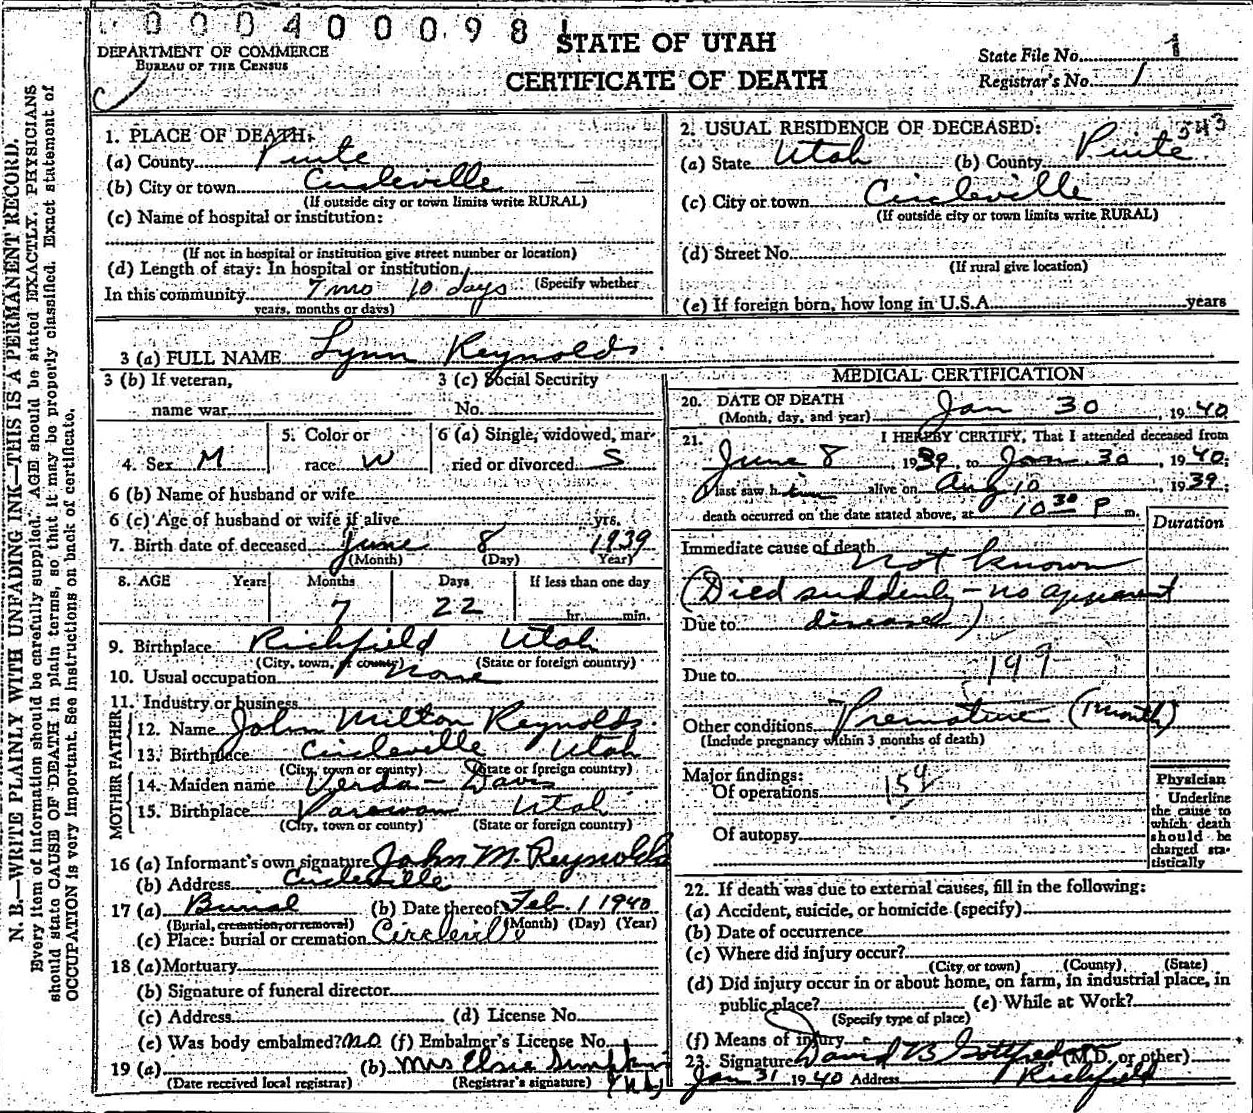 000400098
DEPARTMENT OF COMMERCE
BUREAU OF THE CENSUS
STATE OF UTAH
CERTIFICATE OF DEATH
State File No.
Registrar's No. 1
N. B.—WRITE PLAINLY WITH UNFADING INK—THIS IS A PERMANENT RECORD.
Every item of information should be carefully supplied. AGE should be stated EXACTLY. PHYSICIANS
should state CAUSE OF DEATH in plain terms, so that it may be properly classified. Exact statement of
OCCUPATION is very important. See Instructions on back of certificate.
1. PLACE OF DEATH:
(a) County Piute
(b) City or town Circleville
(If outside city or town limits write RURAL)
(c) Name of hospital or institution:
(If not in hospital or institution give street number or location)
(d) Length of stay: In hospital or institution
(Specify whether
In this community 7 mo 10 days
years, months or days)
2. USUAL RESIDENCE OF DECEASED: 543
(a) State Utah (b) County Piute
(c) City or town Circleville
(If outside city or town limits write RURAL)
(d) Street No.
(If rural give location)
(e) If foreign born, how long in U.S.A. years
3 (a) FULL NAME Lynn Reynolds
3 (b) If veteran,
name war
3 (c) Social Security
No.
4. Sex M
5. Color or
race W
6 (a) Single, widowed, mar-
ried or divorced S
6 (b) Name of husband or wife
6 (c) Age of husband or wife if alive yrs.
7. Birth date of deceased June 8 1939
(Month) (Day) Year)
8. AGE Years Months Days If less than one day
7 22 hr. min.
9. Birthplace Richfield Utah
(City, town, or county) (State or foreign country)
10. Usual occupation None
11. Industry or business
FATHER
12. Name John Milton Reynolds
13. Birthplace Circleville Utah
(City, town or county) (State or foreign country)
MOTHER
14. Maiden name Verda - Davis
15. Birthplace Parowan Utah
(City, town or county) (State or foreign country)
16 (a) Informant's own signature John M. Reynolds
(b) Address Circleville
17 (a) Burial (b) Date thereof Feb. 1 1940
(Burial, cremation, or removal) (Month) (Day) (Year)
(c) Place: burial or cremation Circleville
18 (a) Mortuary
(b) Signature of funeral director
(c) Address (d) License No.
(e) Was body embalmed? No (f) Embalmer's License No.
19 (a) (b) Mrs Elsie Simpkins
(Date received local registrar) (Registrar's signature)
MEDICAL CERTIFICATION
20. DATE OF DEATH
(Month, day, and year) Jan 30, 1940
21. I HEREBY CERTIFY, That I attended deceased from
June 8 1939, to Jan. 30, 1940;
I last saw him alive on Aug 10, 1939;
death occurred on the date stated above, at 10 30 P m.
Duration
Immediate cause of death not known
(Died suddenly - no apparent
Due to disease)
199
Due to
Other conditions Premature (1 month)
(Include pregnancy within 3 months of death)
Major findings:
Of operations 159
Of autopsy
Physician
Underline
the cause to
which death
should be
charged sta-
tistically
22. If death was due to external causes, fill in the following:
(a) Accident, suicide, or homicide (specify)
(b) Date of occurrence
(c) Where did injury occur?
(City or town) (County) (State)
(d) Did injury occur in or about home, on farm, in industrial place, in
public place? (e) While at Work?
(Specify type of place)
(f) Means of injury
23. Signature David B Gottfredson (M.D. or other)
Jan 31 1940 Address Richfield